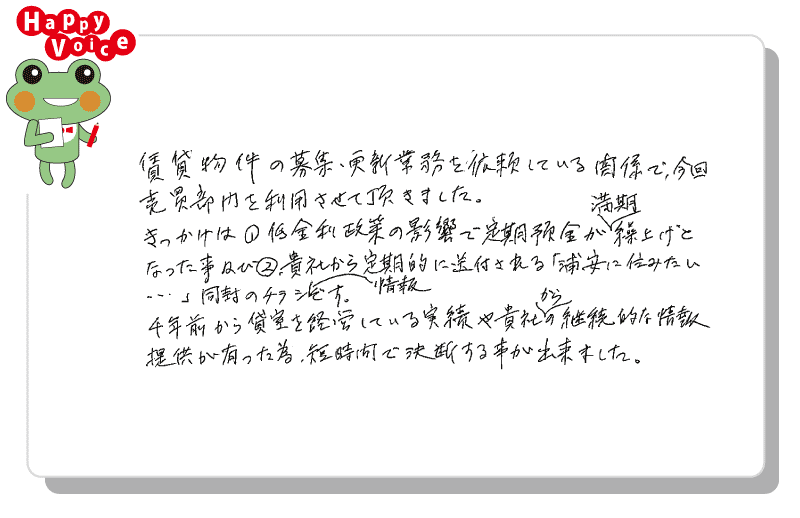 Happy
Voice
賃貸物件の募集、更新業務を依頼している関係で、今回
売買部門を利用させて頂きました。
満期
きっかけは①低金利政策の影響で定期預金が繰上げと
なった事及び②、貴社から定期的に送付される「浦安に住みたい
…」同封のチラシです。
情報
から
4年前から貸室を経営している実績や貴社の継続的な情報
提供が有った為、短時間で決断する事が出来ました。